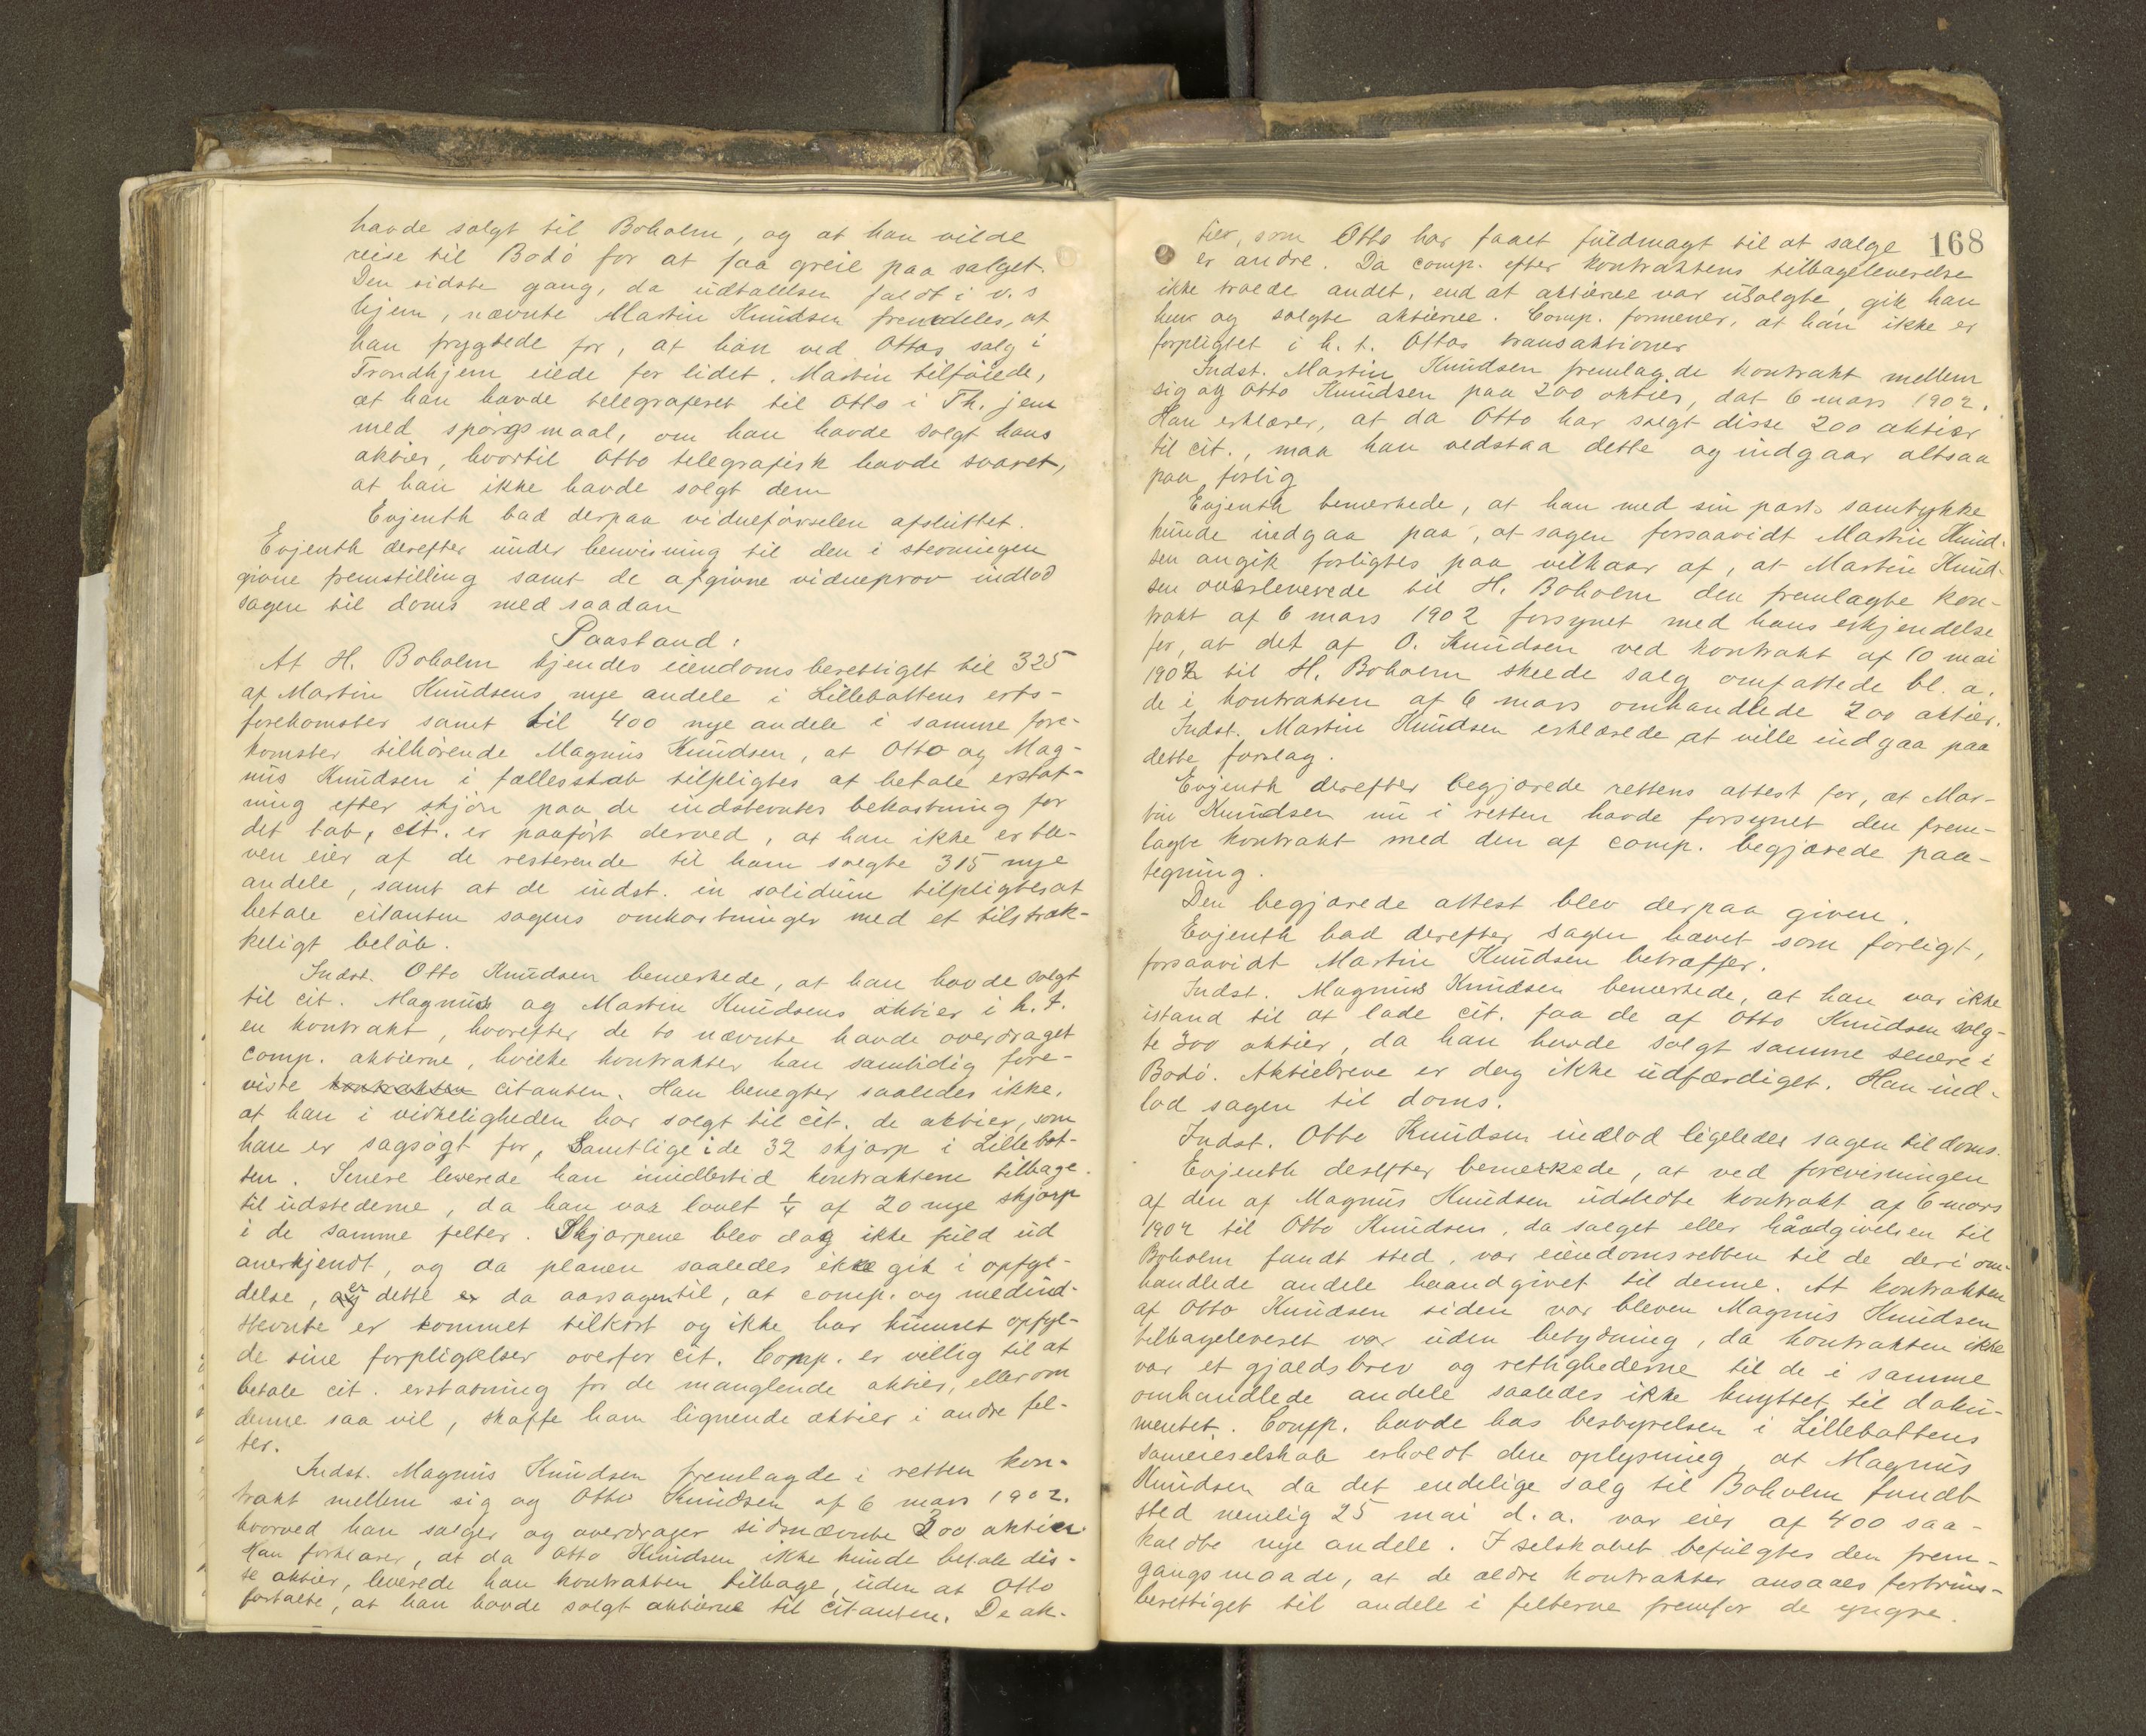 havde solgt til Boholm, og at han vilde
reise til Bodö for at faa greie paa salget.
Den sidste gang, da udtalelsen faldt i v.s
hjem, nævnte Martin Knudsen fremdeles, at
han frygtede for, at han ved Ottos salg i
Trondhjem eiede for lidet. Martin tilföiede,
at han havde telegraferet til Otto i Th.jem
med spörgsmaal, om han havde solgt hans
aktier, hvortil Otto telegrafisk havde svaret,
at han ikke havde solgt dem
Evjenth bad derpaa vidneförselen afsluttet.
Evjenth derefter under henvisning til den i stevningen
givne fremstilling samt de afgivne vidneprov indlod
sagen til doms med saadan
Paastand:
At H. Boholm kjendes eiendomsberettiget til 325
af Martin Knudsens nye andele i Lillebottens erts-
forekomster samt til 400 nye andele i samme fore-
komster tilhörende Magnus Knudsen, at Otto og Mag-
nus Knudsen i fællesskab tilpligtes at betale erstat-
ning efter skjön paa de indstevntes bekostning for
det tab, cit. er paafört derved, at han ikke er ble-
ven eier af de resterende til ham solgte 315 nye
andele, samt at de indst. in solidum tilpligtes at
betale citanten sagens omkostninger med et tilstræk-
keligt belöb.
Indst. Otto Knudsen bemerkede, at han havde solgt
til cit. Magnus og Martin Knudsens aktier i h.t.
en kontrakt, hvorefter de to nævnte havde overdraget
comp. aktierne, hvilke kontrakter han samtidig fore-
viste kontrakten citanten. Han benegter saaledes ikke,
at han i virkeligheden har solgt til cit. de aktier, som
han er sagsögt for, Samtlige i de 32 skjærp i Lillebot-
ten. Senere leverede han imidlertid kontrakterne tilbage
til udstederne, da han var lovet 1/4 af 20 nye skjærp
i de samme felter. Skjærpene blev dog ikke fuld ud
anerkjendt, og da planen saaledes ikke gik i opfyl-
delse, er dette da aarsagen til, at comp. og medind-
stevnte er kommet tilkort og ikke har kunnet opfyl-
de sine forpligtelser overfor cit. Comp. er villig til at
betale cit. erstatning for de manglende aktier, eller om
denne saa vil, skaffe ham lignende aktier i andre fel-
ter.
Indst. Magnus Knudsen fremlagde i retten kon-
trakt mellem sig og Otto Knudsen af 6 mars 1902.
hvorved han sælger og overdrager sidnævnte 300 aktier
Han forklarer, at da Otto Knudsen ikke kunde betale dis-
se aktier, leverede han kontrakten tilbage, uden at Otto
fortalte, at han havde solgt aktierne til citanten. De ak-
168
tier, som Otto har faaet fuldmagt til at sælge
er andre. Da comp. efter kontraktens tilbageleverelse
ikke troede andet, end at aktierne var usolgte, gik han
hen og solgte aktierne. Comp. formener, at han ikke er
forpligtet i h.t. Ottos transaktioner
Indst. Martin Knudsen fremlagde kontrakt mellem
sig og Otto Knudsen paa 200 aktier, dat 6 mars 1902.
Han erklærer, at da Otto har solgt disse 200 aktier
til cit., maa han vedstaa dette og indgaar altsaa
paa forlig
Evjenth bemerkede, at han med sin parts samtykke
kunde indgaa paa, at sagen forsaavidt Martin Knud-
sen angik forligtes paa vilkaar af, at Martin Knud-
sen overleverede til H. Boholm den fremlagte kon-
trakt af 6 mars 1902 forsynet med hans erkjendelse
for, at det af O. Knudsen ved kontrakt af 10 mai
1902 til H. Boholm skeede salg omfattede bl. a.
de i kontrakten af 6 mars omhandlede 200 aktier.
Indst. Martin Knudsen erklærede at ville indgaa paa
dette forslag.
Evjenth derefter begjærede rettens attest for, at Mar-
tin Knudsen nu i retten havde forsynet den frem-
lagte kontrakt med den af comp. begjærede paa-
tegning.
Den begjærede attest blev derpaa given.
Evjenth bad derefter sagen hævet som forligt,
forsaavidt Martin Knudsen betræffer.
Indst. Magnus Knudsen bemerkede, at han var ikke
istand til at lade cit. faa de af Otto Knudsen solg-
te 300 aktier, da han havde solgt samme senere i
Bodö. Aktiebreve er dog ikke udfærdiget. Han ind-
lod sagen til doms.
Indst. Otto Knudsen indlod ligeledes sagen til doms.
Evjenth derefter bemerkede, at ved forevisningen
af den af Magnus Knudsen udstedte kontrakt af 6 mars
1902 til Otto Knudsen, da salget eller håndgivelsen til
Boholm fandt sted, var eiendomsretten til de deri om-
handlede andele haandgivet til denne. At kontrakten
af Otto Knudsen siden var bleven Magnus Knudsen
tilbageleveret var uden betydning, da kontrakten ikke
var et gjældsbrev og rettighederne til de i samme
omhandlede andele saaledes ikke knyttet til doku-
mentet. Comp. havde hos bestyrelsen i Lillebottens
sameieselskab erholdt den oplysning, at Magnus
Knudsen da det endelige salg til Boholm fandt
sted nemlig 25 mai d.a. var eier af 400 saa-
kaldte nye andele. I selskabet befulgtes den frem-
gangsmaade, at de ældre kontrakter ansaaes fortrins-
berettiget til andele i felterne fremfor de yngre.